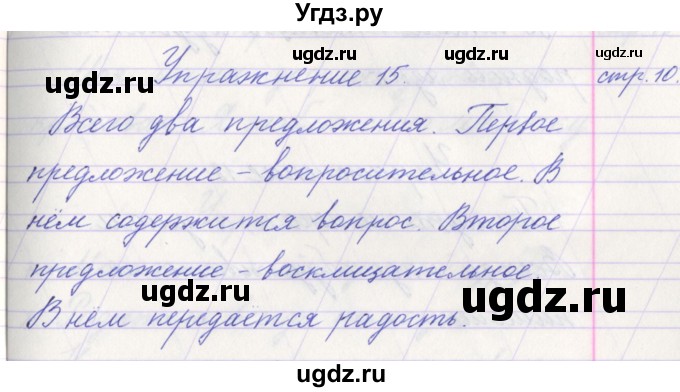 Угдз.ру
ugdz.ru ugdz.ru
Упражнение 15. стр. 10.
ugdz.ru ugdz.ru
Всего два предложения. Первое
предложение – вопросительное. В
нём содержится вопрос. Второе
предложение – восклицательное
ugdz.ru ugdz.ru
В нём передаётся радость.
ugdz.ru ugdz.ru